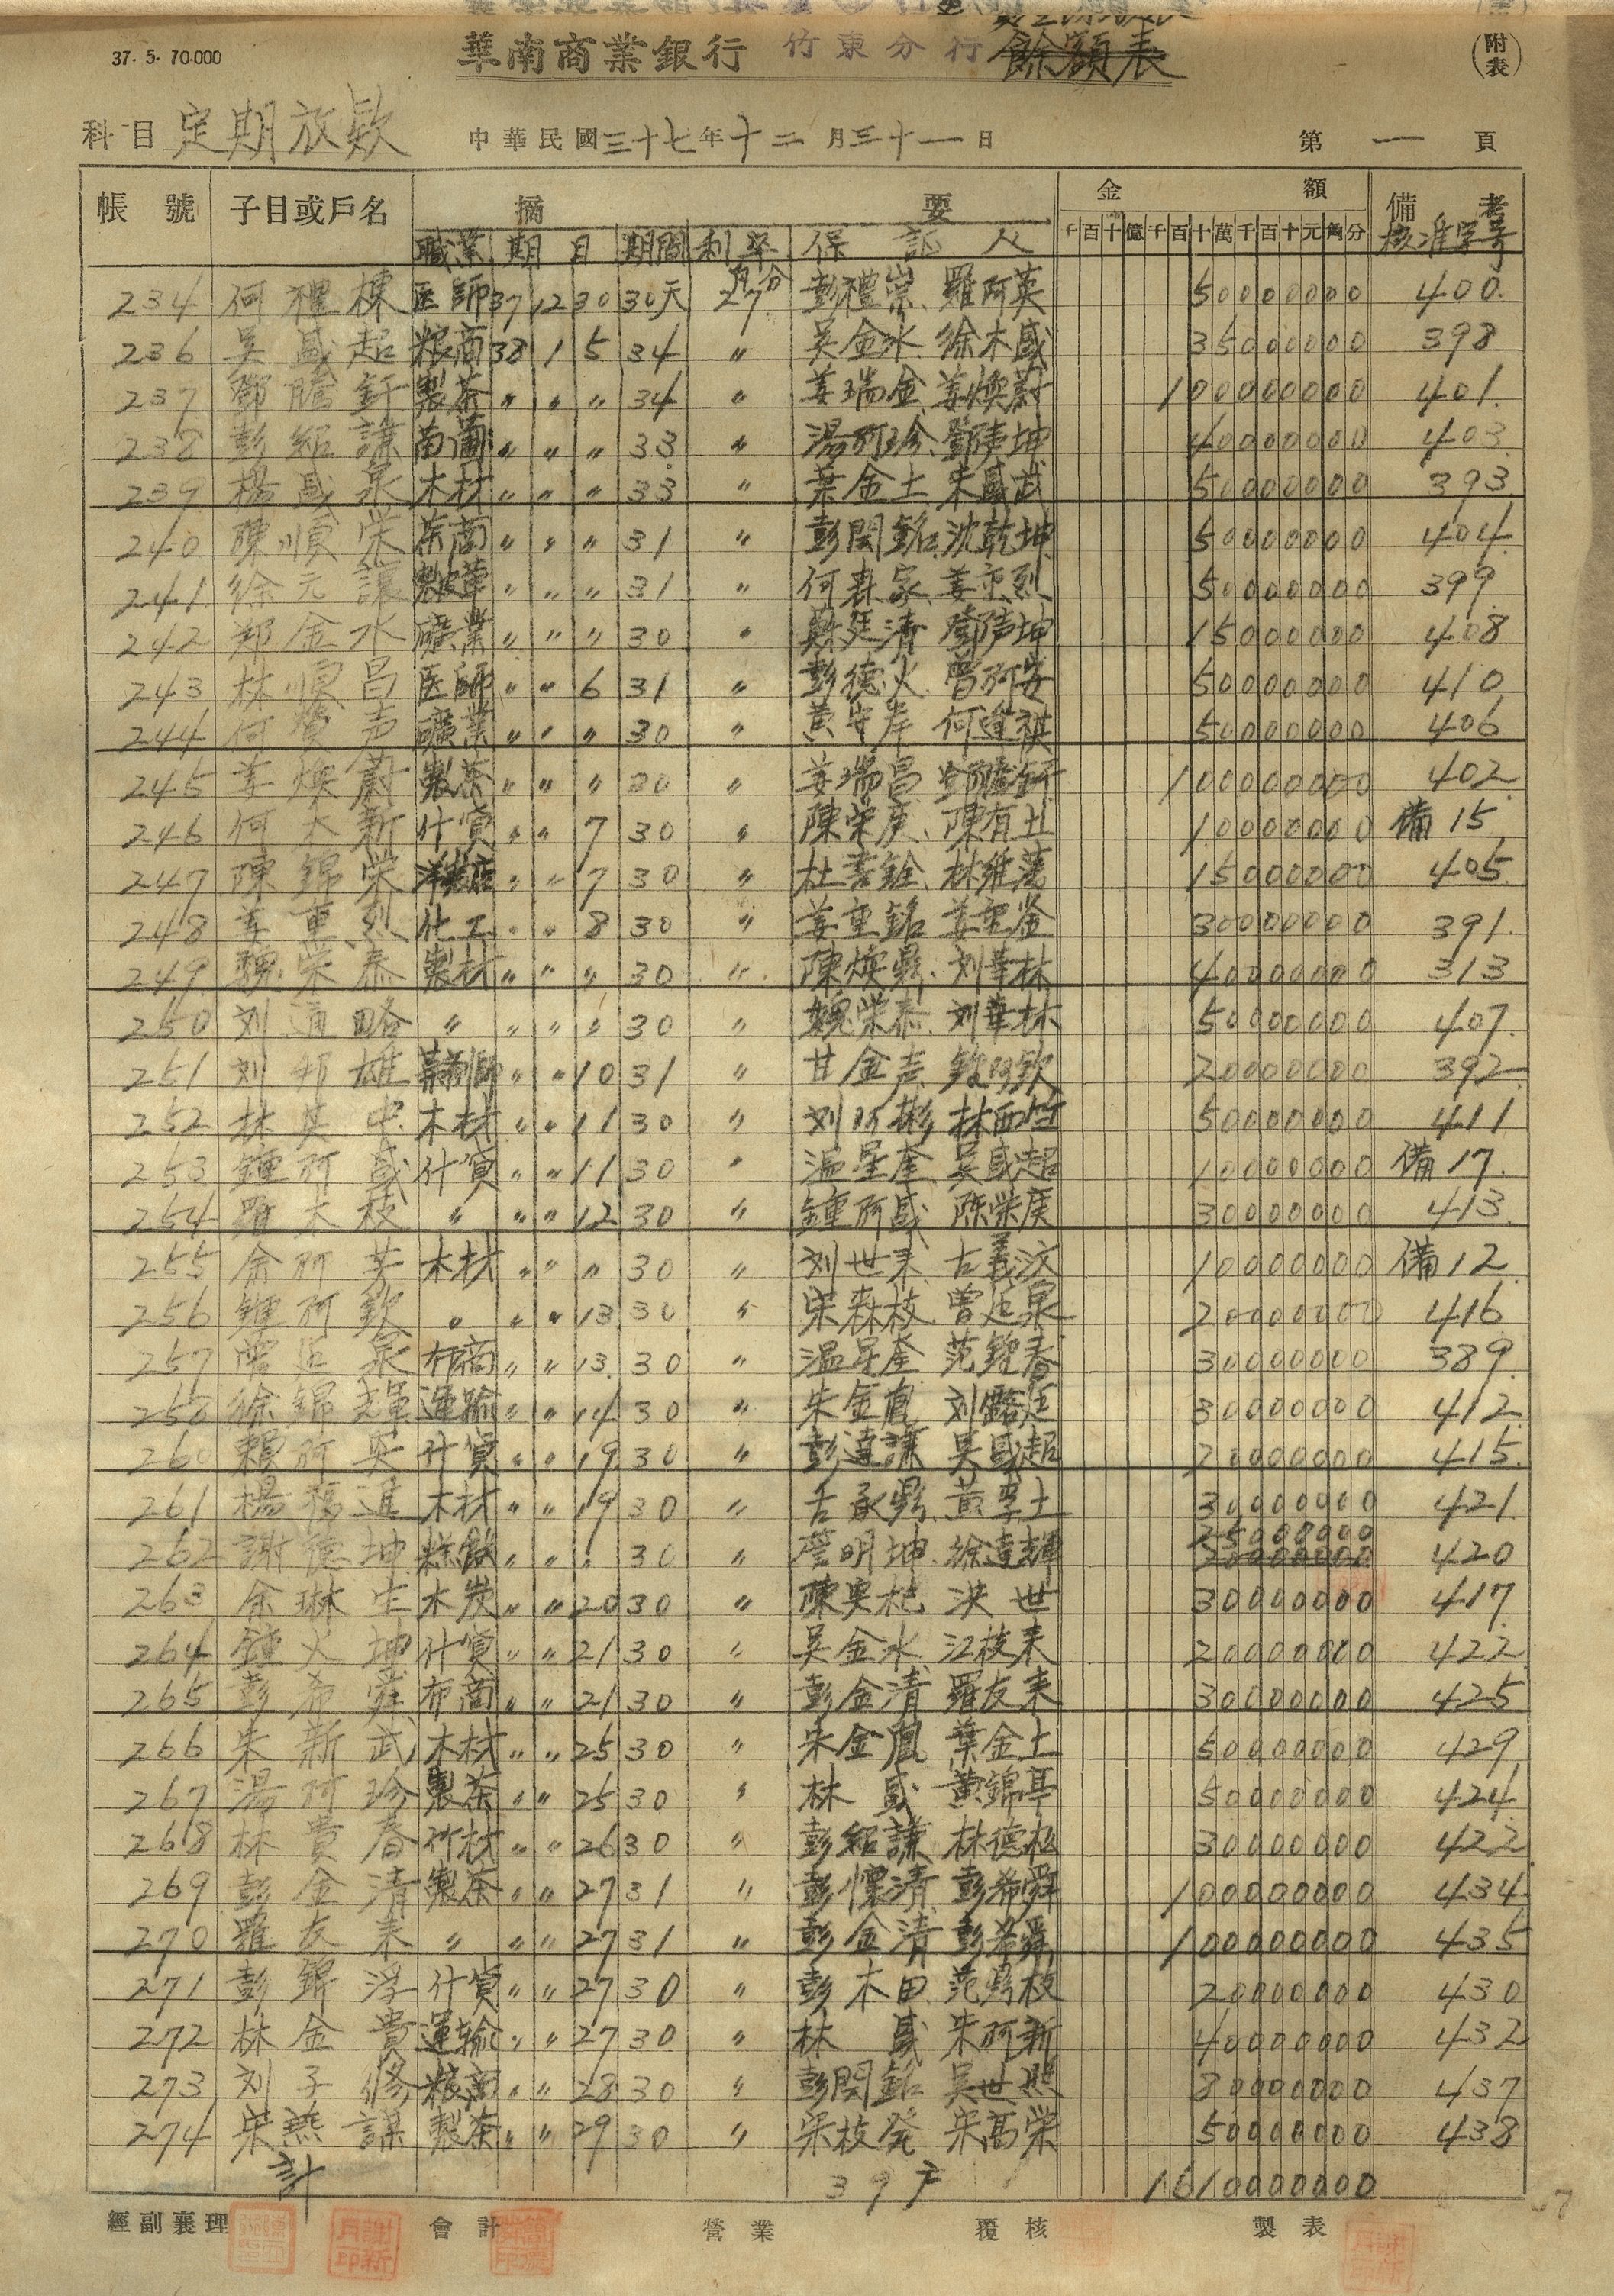 37. 5. 70.000
華南商業銀行 竹東分行 餘額表
(附表)
科目 定期放款 中華民國三十七年十二月三十一日 第一頁
帳號 子目或戶名 摘要 金額 備考
職業 期日 期間 利率 保証人 千百十億千百十萬千百十元角分 核准字号
月分
234 何禮棟 医師 37 12 30 30天 27 彭禮崇、羅阿英 50000000 400.
236 吳盛起 粮商 38 1 5 34 〃 吳金水 徐木盛 35000000 398
237 鄧騰釬 製茶 〃 〃 〃 34 〃 姜瑞金 姜煥蔚 100000000 401.
238 彭紹謙 〃 〃 〃 33 〃 湯阿珍、鄧声坤 40000000 403.
239 楊盛泉 木材 〃 〃 〃 33 〃 葉金土 朱盛武 50000000 393.
240 陳順栄 茶商 〃 〃 〃 31 〃 彭開銘、沈乾坤 50000000 404.
241. 徐元讓 製皮革 〃 〃 〃 31 〃 何春家、姜重烈 50000000 399.
242 鄭金水 礦業 〃 〃 〃 30 〃 蘇廷清 鄧声坤 15000000 408
243 林順昌 医師 〃 〃 6 31 〃 彭德火 曾阿安 50000000 410
244 何 声 礦業 〃 〃 〃 30 〃 黃守岸 何連祺 50000000 406
245 姜煥蔚 製茶 〃 〃 〃 30 〃 姜瑞昌 鄧騰釬 100000000 402
246 何木新 什貨 〃 〃 7 30 〃 陳栄庚、陳有土 10000000 備15
247 陳錦栄 洋裝店 〃 〃 7 30 〃 杜 銓、林維 15000000 405.
248 姜重烈 化工 〃 〃 8 30 〃 姜重銘 姜重 30000000 391.
249 魏栄泰 製材 〃 〃 〃 30 〃 陳煥鼎、刘華林 40000000 313
250 刘通略 〃 〃 〃 〃 30 〃 魏栄泰、刘華林 50000000 407.
251 刘邦雄 薬剤師 〃 〃 10 31 〃 甘金声 鍾阿欽 20000000 392.
252 林其中 木材 〃 〃 11 30 〃 刘阿彬 林西竺 50000000 411
253 鍾阿盛 什貨 〃 〃 11 30 〃 温星奎、吳盛起 10000000 備17.
254 羅木枝 〃 〃 〃 12 30 〃 鍾阿盛 陈栄庚 30000000 413.
255 余阿 木材 〃 〃 〃 30 〃 刘世来 古義汶 10000000 備12
256 鍾阿欽 〃 〃 〃 13 30 〃 宋森枝 曾延泉 20000000 416
257 曾延泉 布商 〃 〃 13. 30 〃 温星奎 范錦春 30000000 389
258 徐錦輝 運輸 〃 〃 14 30 〃 朱金鳳 刘 廷 30000000 412
260 賴阿 什貨 〃 〃 19 30 〃 彭達謙 吳盛起 20000000 415.
261 楊福進 木材 〃 〃 19 30 〃 古承鼎 黃 土 30000000 421.
262 謝德坤 〃 〃 〃 30 〃 詹明坤 徐達輝 25000000 420
263 余琳生 木炭 〃 〃 20 30 〃 陳 洪世 30000000 417
264 鍾火坤 什貨 〃 〃 21 30 〃 吳金水 江枝来 20000000 422
265 彭希舜 布商 〃 〃 21 30 〃 彭金清 羅友来 30000000 425
266 朱新武 木材 〃 〃 25 30 〃 朱金鳳 葉金土 50000000 429
267 湯阿珍 製茶 〃 〃 25 30 〃 林盛 黃錦亭 50000000 424
268 林貴春 竹材 〃 〃 26 30 〃 彭紹謙 林德松 30000000 422
269 彭金清 製茶 〃 〃 27 31 〃 彭懷清 彭希舜 100000000 434
270 羅友来 〃 〃 〃 27 31 〃 彭金清 彭希舜 100000000 435
271 彭錦浮 什貨 〃 〃 27 30 〃 彭木田 范鼎枝 20000000 430
272 林金貴 運輸 〃 〃 27 30 〃 林盛 朱阿新 40000000 432
273 刘子修 粮商 〃 〃 28 30 〃 彭開銘 吳世熙 30000000 437
274 宋燕謀 製茶 〃 〃 29 30 〃 宋枝発 宋高栄 50000000 438
計 39戶 1610000000
經副襄理 會計 營業 覆核 製表